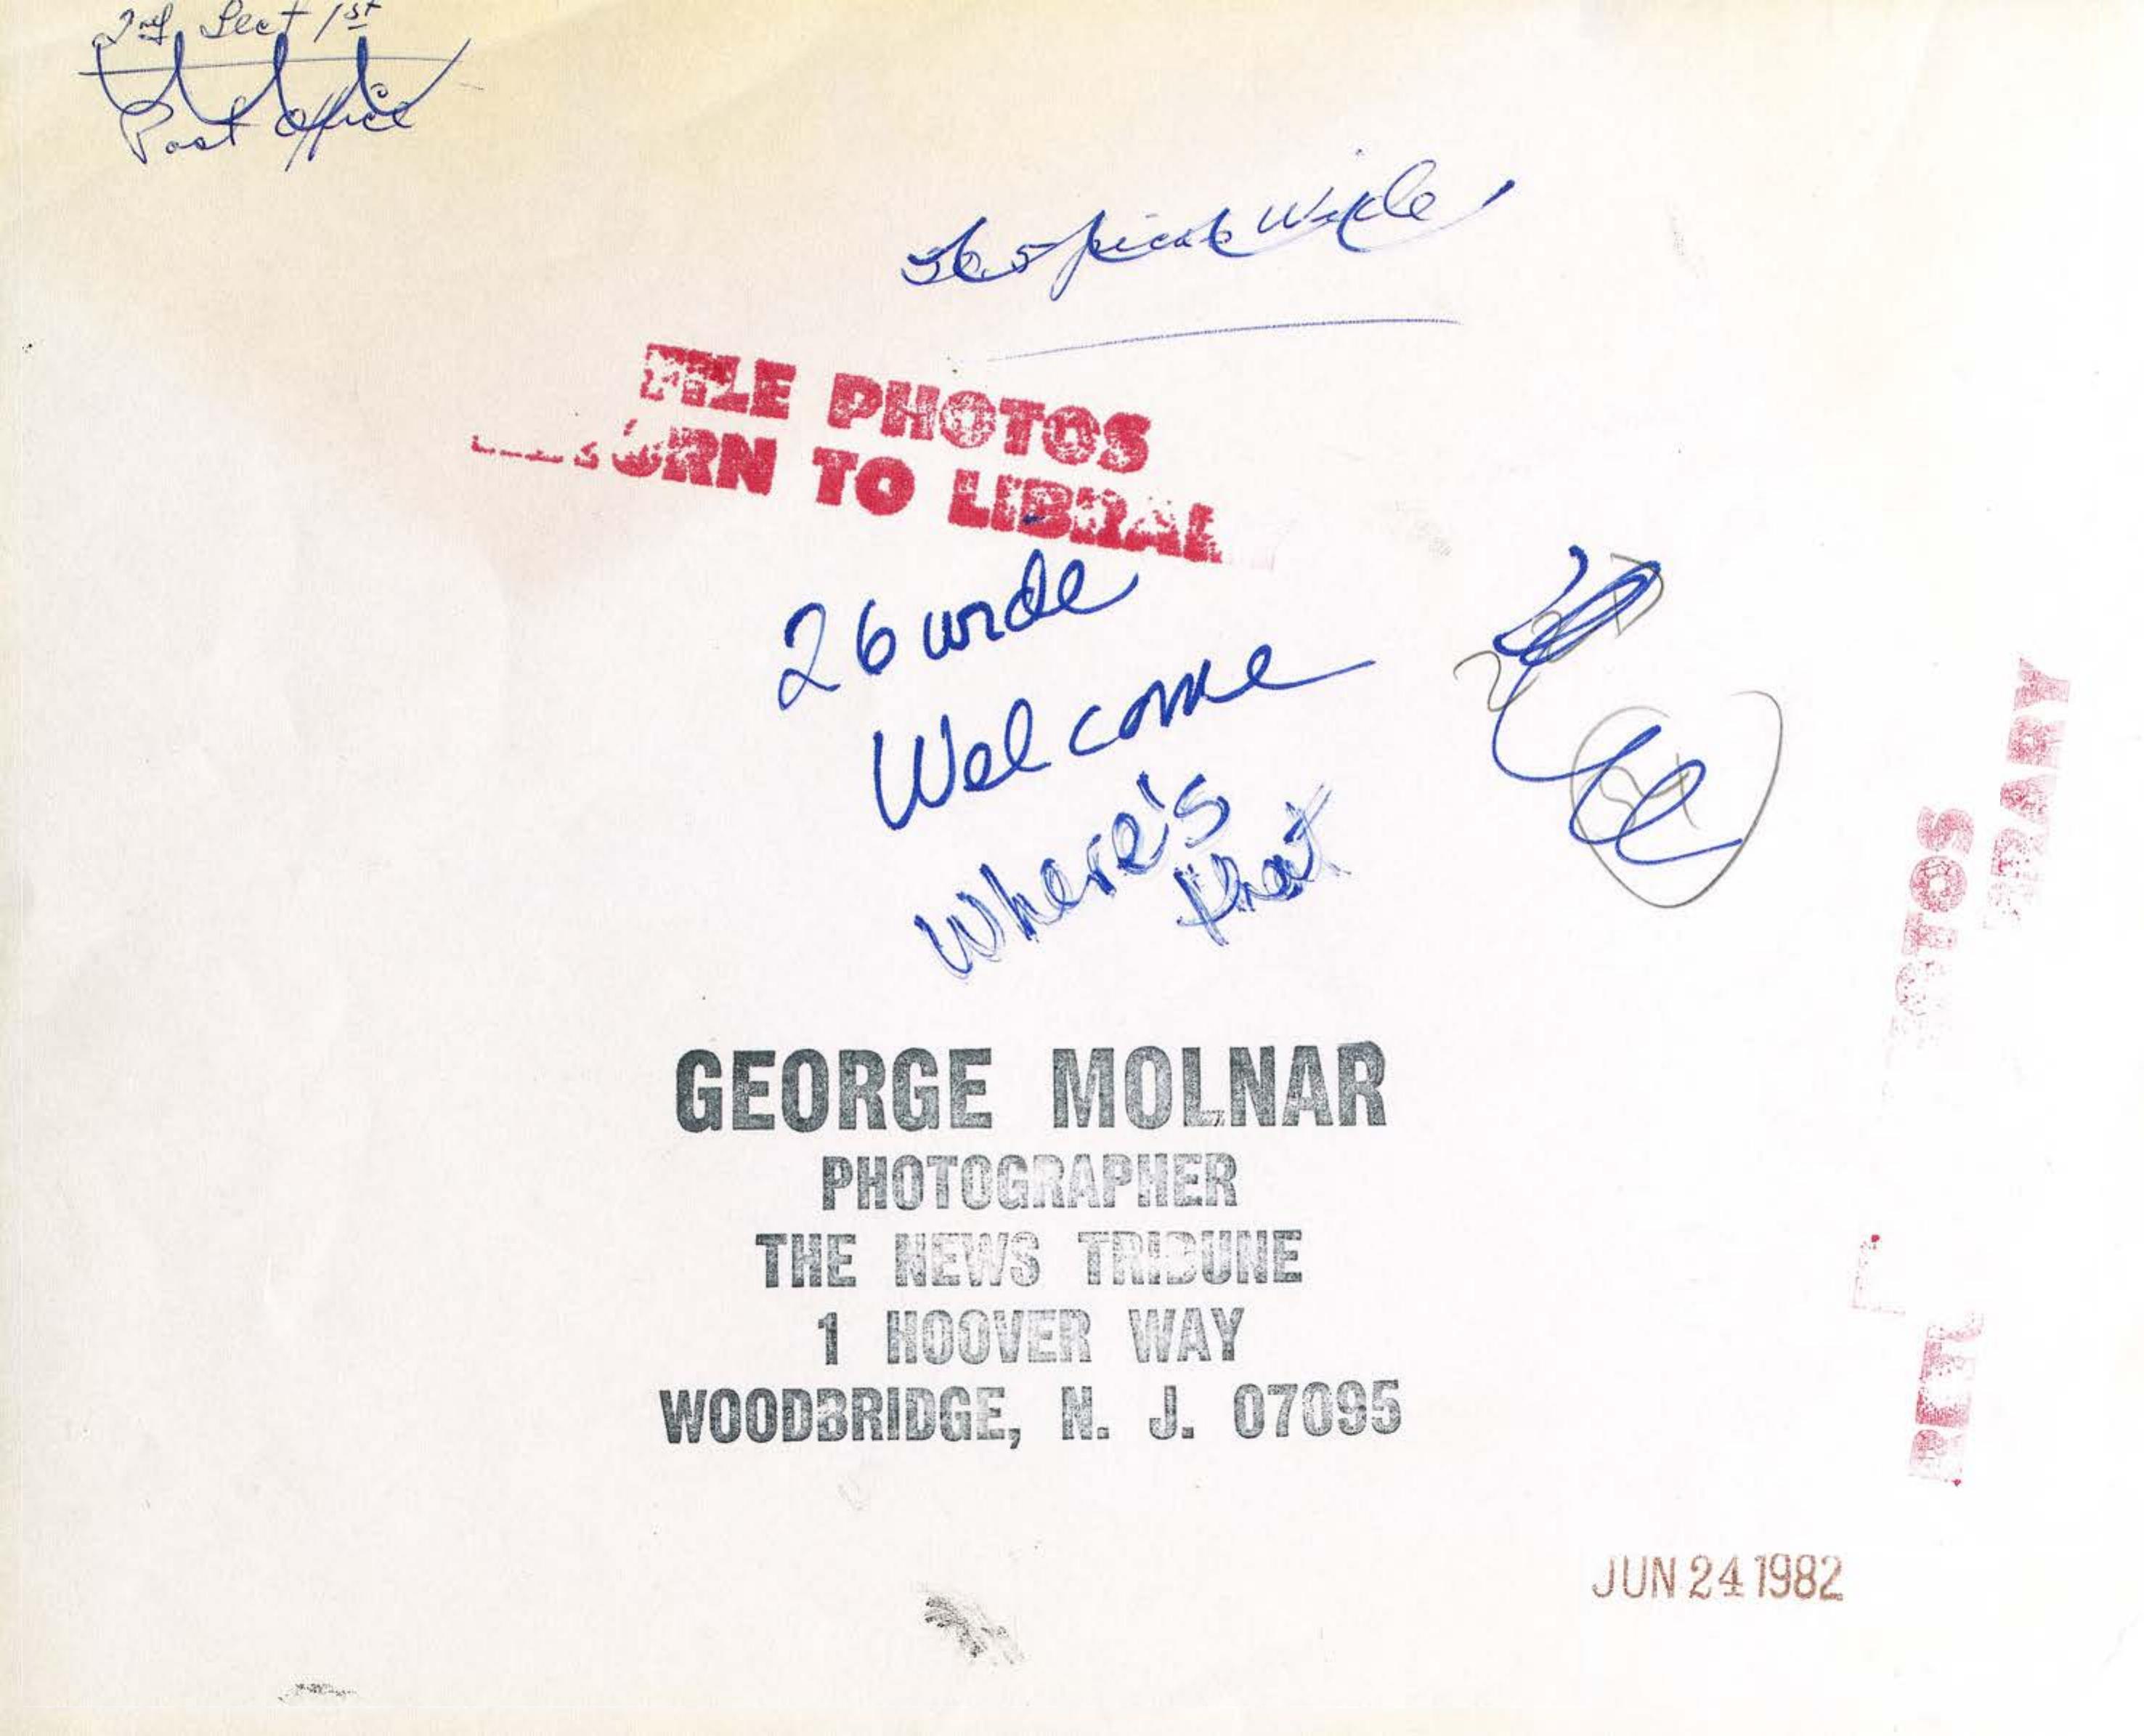 2nd Sect 1st
Post Office
36.5 picas wide
FILE PHOTOS
TURN TO LIBRAR
26 wide
Welcome
Where's
that
GEORGE MOLNAR
PHOTOGRAPHER
THE NEWS TRIBUNE
1 HOOVER WAY
WOODBRIDGE, N. J. 07095
OTOS
BRARY
RETU
JUN 24 1982